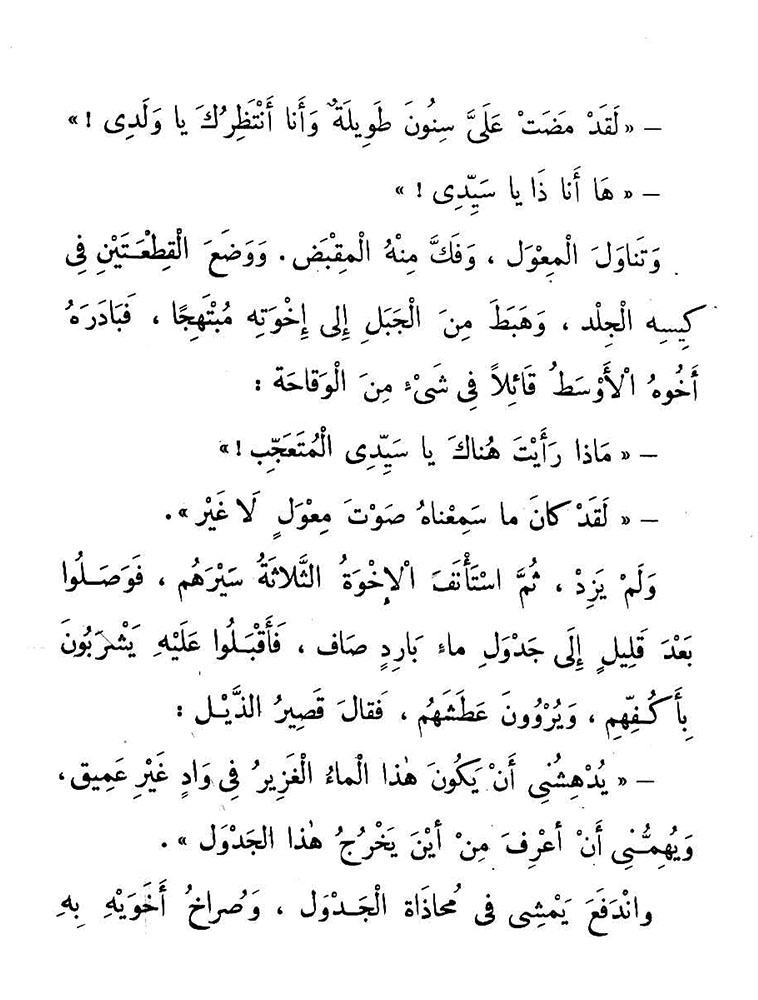 — « لَقَدْ مَضَتْ عَلَىَّ سِنُونَ طَوِيلَةٌ وَأَنا أَنْتَظِرُكَ يا وَلَدِى ! »
— « هَا أَنا ذَا يا سَيِّدِى ! »
وَتَناوَلَ الْمِعْوَل ، وَفَكَّ مِنْهُ الْمِقْبَض . وَوَضَعَ الْقِطْعَتَيْنِ فِى
كِيسِهِ الْجِلْد ، وَهَبَطَ مِنَ الْجَبَلِ إِلى إِخْوَتِهِ مُبْتَهِجًا ، فَبَادَرَهُ
أَخُوهُ الْأَوْسَطُ قَائِلاً فِى شَىْءٍ مِنَ الْوَقاحَة :
— « مَاذا رَأَيْتَ هُناكَ يا سَيِّدِى الْمُتَعَجِّب ! »
— « لَقَدْ كانَ ما سَمِعْناهُ صَوْتَ مِعْوَلٍ لَا غَيْر » .
وَلَمْ يَزِدْ ، ثُمَّ اسْتَأْنَفَ الْإِخْوَةُ الثَّلاثَةُ سَيْرَهُم ، فَوَصَلُوا
بَعْدَ قَلِيلٍ إِلَى جَدْوَلِ ماءٍ بَارِدٍ صَاف ، فَأَقْبَلُوا عَلَيْهِ يَشْرَبُونَ
بِأَكُفِّهِم ، وَيُرْوُونَ عَطَشَهُم ، فَقالَ قَصِيرُ الذَّيْل :
— « يُدْهِشُنِى أَنْ يَكُونَ هٰذا الْماءُ الْغَزِيرُ فِى وَادٍ غَيْرِ عَمِيق ،
وَيُهِمُّنِى أَنْ أَعْرِفَ مِنْ أَيْنَ يَخْرُجُ هٰذا الجَدْوَل » .
وانْدَفَعَ يَمْشِى فى مُحاذَاة الْجَدْوَل ، وَصُراخُ أَخَوَيْهِ بِهِ